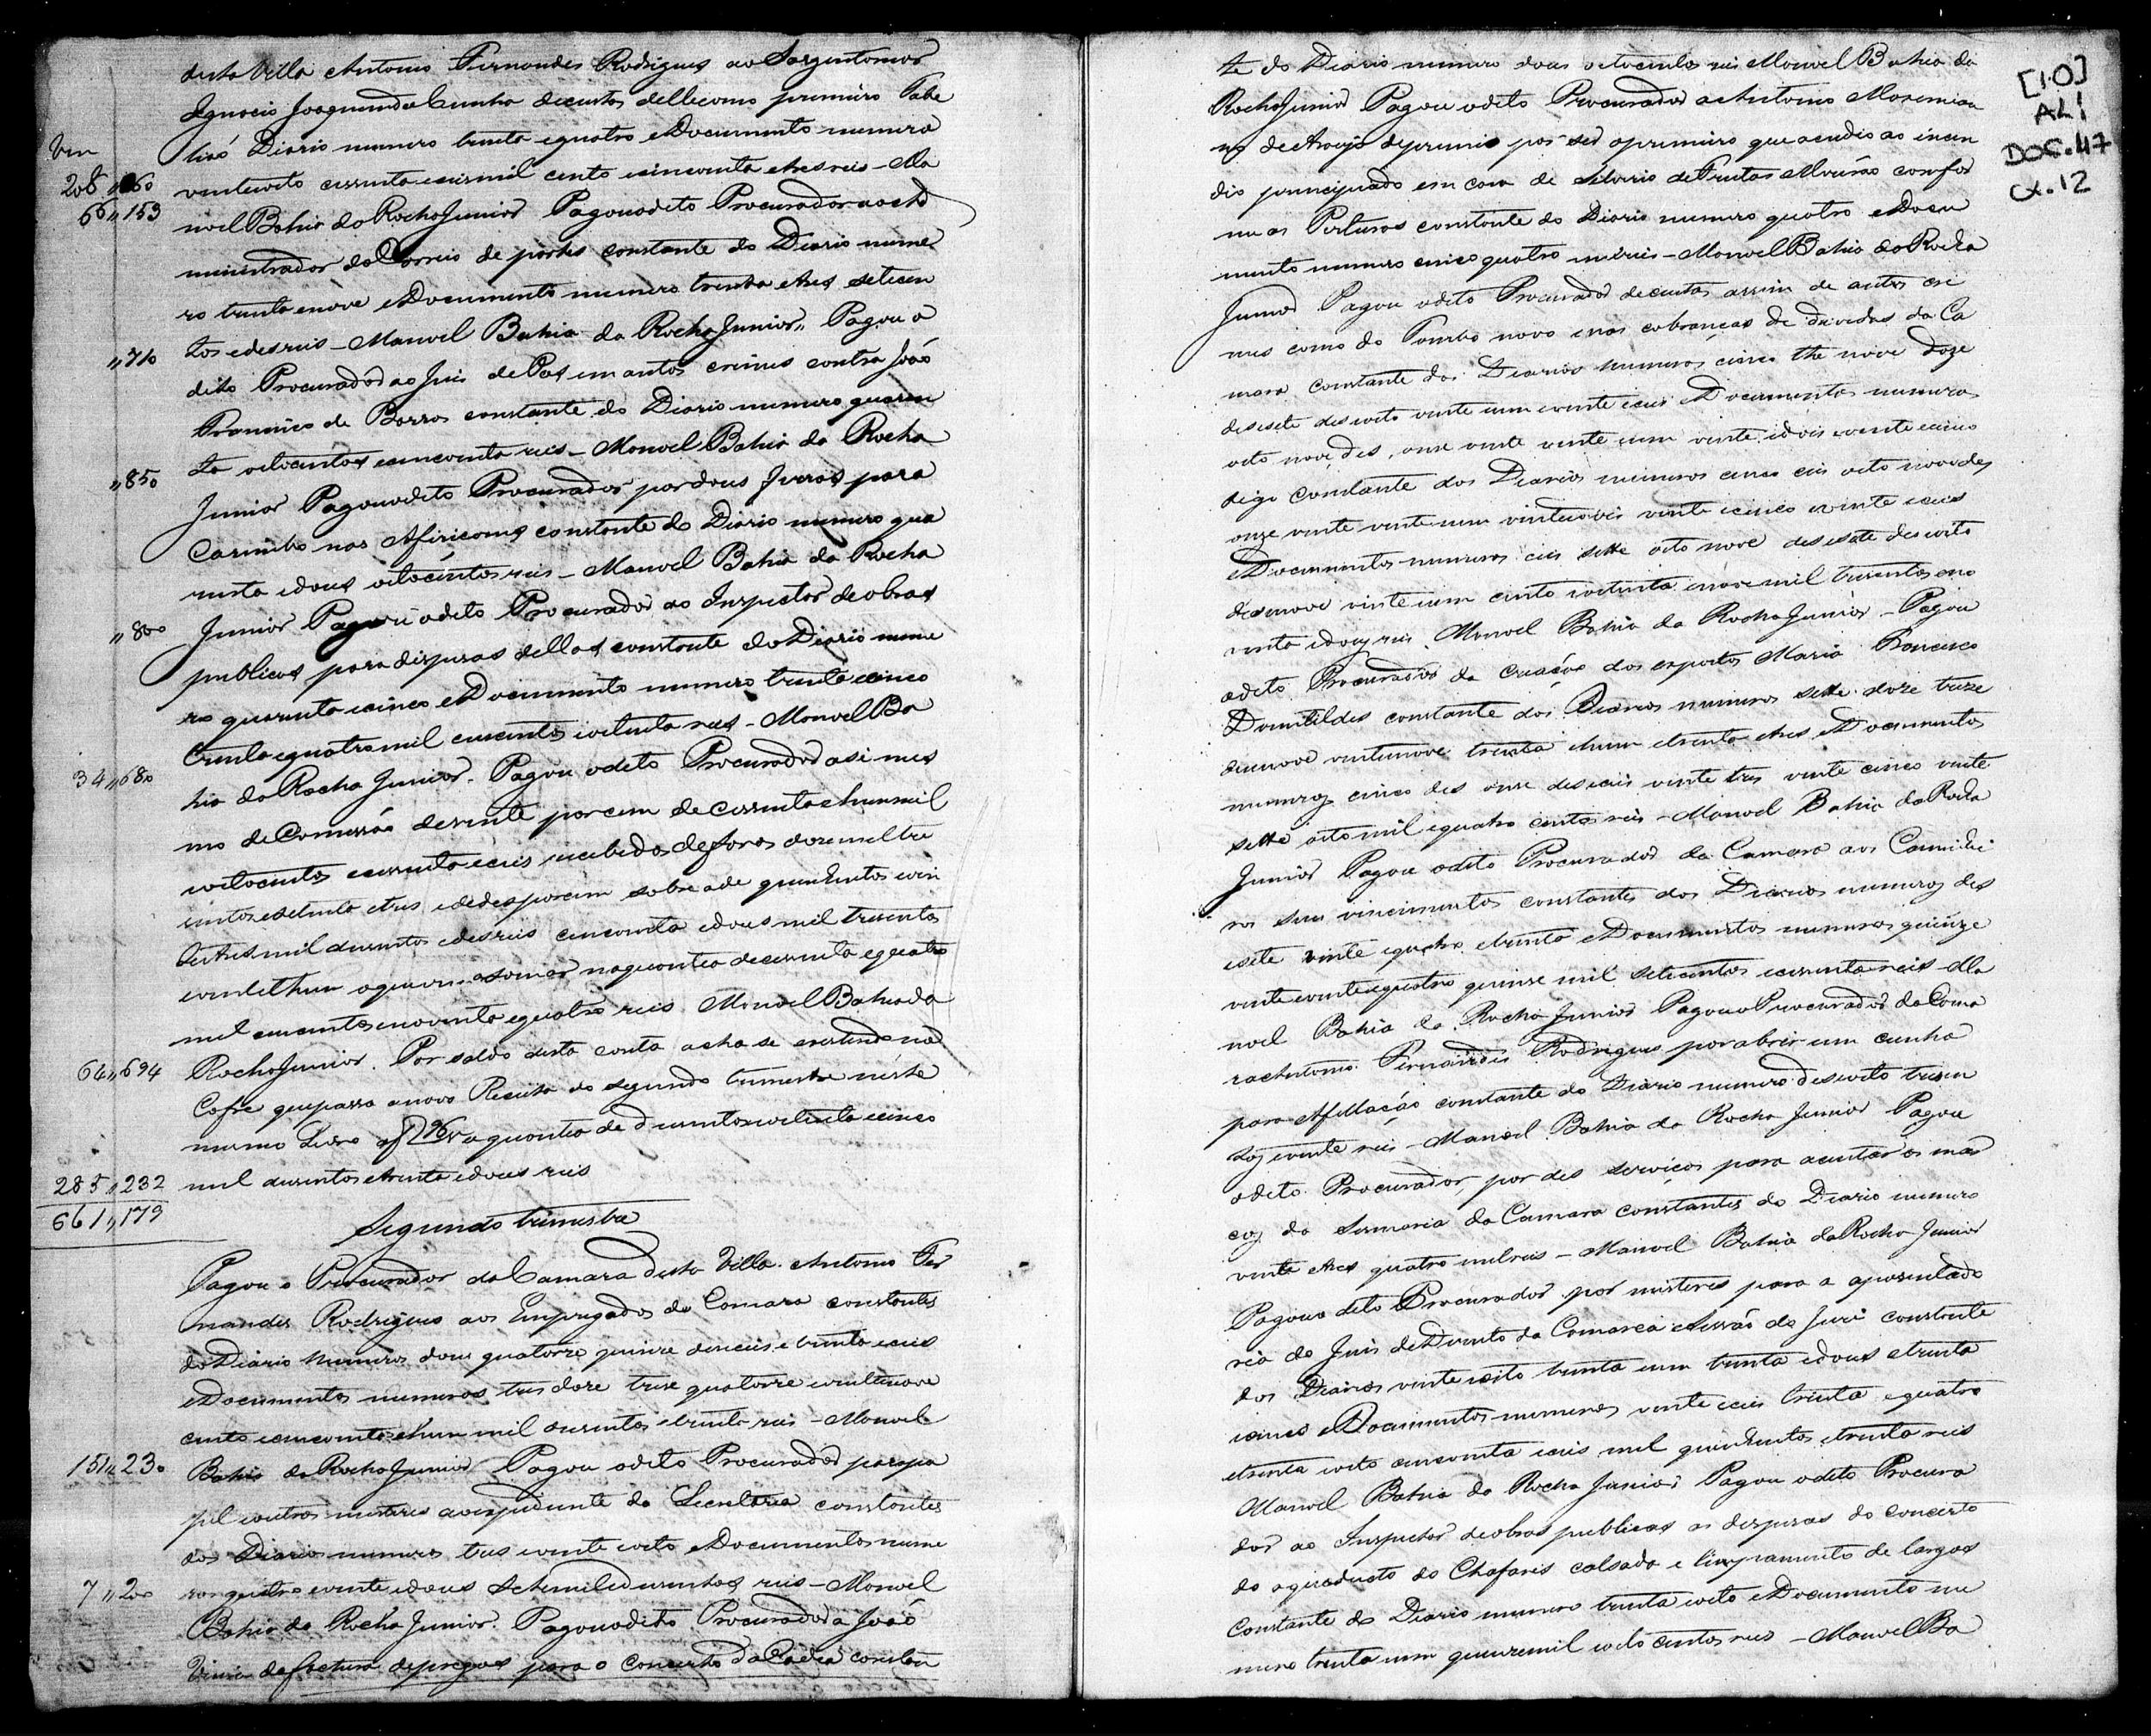 desta Villa Antonio Fernandes Rodrigues ao Sargentomor
Ignacio Joaquim da Cunha de custas delle como primeiro Tabe
lião Diario numero trinta e quatro e Documento numero
Vem
208,,060 vinte oito cessenta e ceis mil cento e cincoenta e tres reis - Ma
66,,153 noel Bahia da Rocha Junior Pagou o dito Procurador ao Ad
ministrador do Correio de portes constante do Diario nume
ro trinta e nove e Documento numero trinta e tres setecen
,,710 tos e des reis - Manoel Bahia da Rocha Junior,, Pagou o
dito Procurador ao Juis de Pas em autos crimes contra João
Francisco de Barros constante do Diario numero quaren
,,850 ta oitocentos e cincoenta reis - Manoel Bahia da Rocha
Junior Pagou o dito Procurador por dous para
Carimbo nas constante do Diario numero qua
renta e dous oitocentos reis - Manoel Bahia da Rocha
,,800 Junior Pagou o dito Procurador ao Inspector de obras
publicas para dispesas dellas constante do Diario nume
ro quarenta e cinco e Documento numero trinta e cinco
trinta e quatro mil ceiscentos e oitenta reis - Manoel Ba
34,,680 hia da Rocha Junior. Pagou o dito Procurador a si mes
mo de Comissão de vinte por cem de cessenta e hum mil
oitocentos e cessenta e ceis recebidos de foros doze mil tre
sentos e setenta e tres e de des por cem sobre a de quinhentos e vin
te e tres mil dusentos e des reis cincoenta e dous mil tresentos
e vinte e hum a somar na quantia de cessenta e quatro
mil ceiscentos e noventa e quatro reis. Manoel Bahia da
64,,694 Rocha Junior. Por saldo desta conta acha se existindo no
Cofre que passa a nova Receita do segundo trimestre neste
mesmo Livro a f a quantia de dusentos e oitenta e cinco
285,,232 mil dusentos e trinta e dous reis
661,,179
Segundo trimestre
Pagou o Procurador da Camara desta Villa Antonio Fer
nandes Rodrigues aos Empregados da Camara constantes
do Diario Numeros dous quatorze quinze desaceis e trinta e ceis
e Documentos numeros tres doze treze quatorze e vinte nove
cento e cincoenta e hum mil dusentos e trinta reis - Manoel
151,,230 Bahia da Rocha Junior Pagou o dito Procurador por pa
pel e outros misteres ao expediente da Secretaria constantes
dos Diarios numeros tres e vinte e oito e Documentos nume
7,,200 ros quatro e vinte e dous sete mil e dusentos reis - Manoel
Bahia da Rocha Junior. Pagou o dito Procurador a João
de factura de pregos para o concerto da Cadea constan
[10]
AL1
DOC.47
CX.12
te do Diario numero dous oitocentos reis Manoel Bahia da
Rocha Junior Pagou o dito Procurador a Antonio Maximia
no de Araujo de premio por ser o primeiro que acudio ao incen
dio principiado em casa de Silverio de Freitas Mourão confor
me as Posturas constante do Diario numero quatro e Docu
mento numero cinco quatro mil reis - Manoel Bahia da Rocha
Junior Pagou o dito Procurador de custas assim de autos cri
mes como do Tombo novo e nas cobranças de dividas da Ca
mara constante dos Diarios numeros cinco the nove doze
desesete desoito vinte um e vinte e ceis e Documentos numeros
oito nove, des, onze vinte vinte e um vinte e dois e vinte e cinco
digo constante dos Diarios numeros cinco ceis oito nove des
onze vinte vinte e um vinte e dois vinte e cinco e vinte e ceis
e Documentos numeros ceis sette oito nove desesete desoito
desanove vinte e um cento e oitenta e nove mil tresentos e no
venta e dous reis. Manoel Bahia da Rocha Junior - Pagou
o dito Procurador da criação dos expostos Maria Francisco
Domitildes constante dos Diarios numeros sette doze treze
desanove vinte nove trinta e hum e trinta e tres e Documentos
numeros cinco des onze desaceis vinte tres vinte cinco vinte
sette oito mil e quatro centos reis - Manoel Bahia da Rocha
Junior Pagou o dito Procurador da Camara aos Camidei
ros seus vencimentos constantes dos Diarios numeros des
esete vinte e quatro e trinta e Documentos numeros quinze
vinte e vinte e quatro quinze mil setecentos e cessenta reis - Ma
noel Bahia da Rocha Junior Pagou o Procurador da Cama
ra Antonio Fernandes Rodrigues por abrir um cunho
para Afillação constante do Diario numero desoito tresen
tos e vinte reis - Manoel Bahia da Rocha Junior Pagou
o dito Procurador por des serviços para acentar os mar
cos da Sesmaria da Camara constantes do Diario numero
vinte e tres quatro mil reis - Manoel Bahia da Rocha Junior
Pagou o dito Procurador por misteres para a aposentado
ria do Juis de Direito da Comarca e Sessão do Juri constante
dos Diarios vinte e oito trinta e um trinta e dous e trinta
e cinco e Documentos numeros vinte e ceis trinta e quatro
e trinta e oito cincoenta e ceis mil quinhentos e trinta reis
Manoel Bahia da Rocha Junior Pagou o dito Procura
dor ao Inspector de obras publicas as despesas do concerto
do aqueducto do Chafaris calsada e limpamento de largos
Constante do Diario numero trinta e oito e Documento nu
mero trinta e um quinze mil e oito centos reis - Manoel Ba